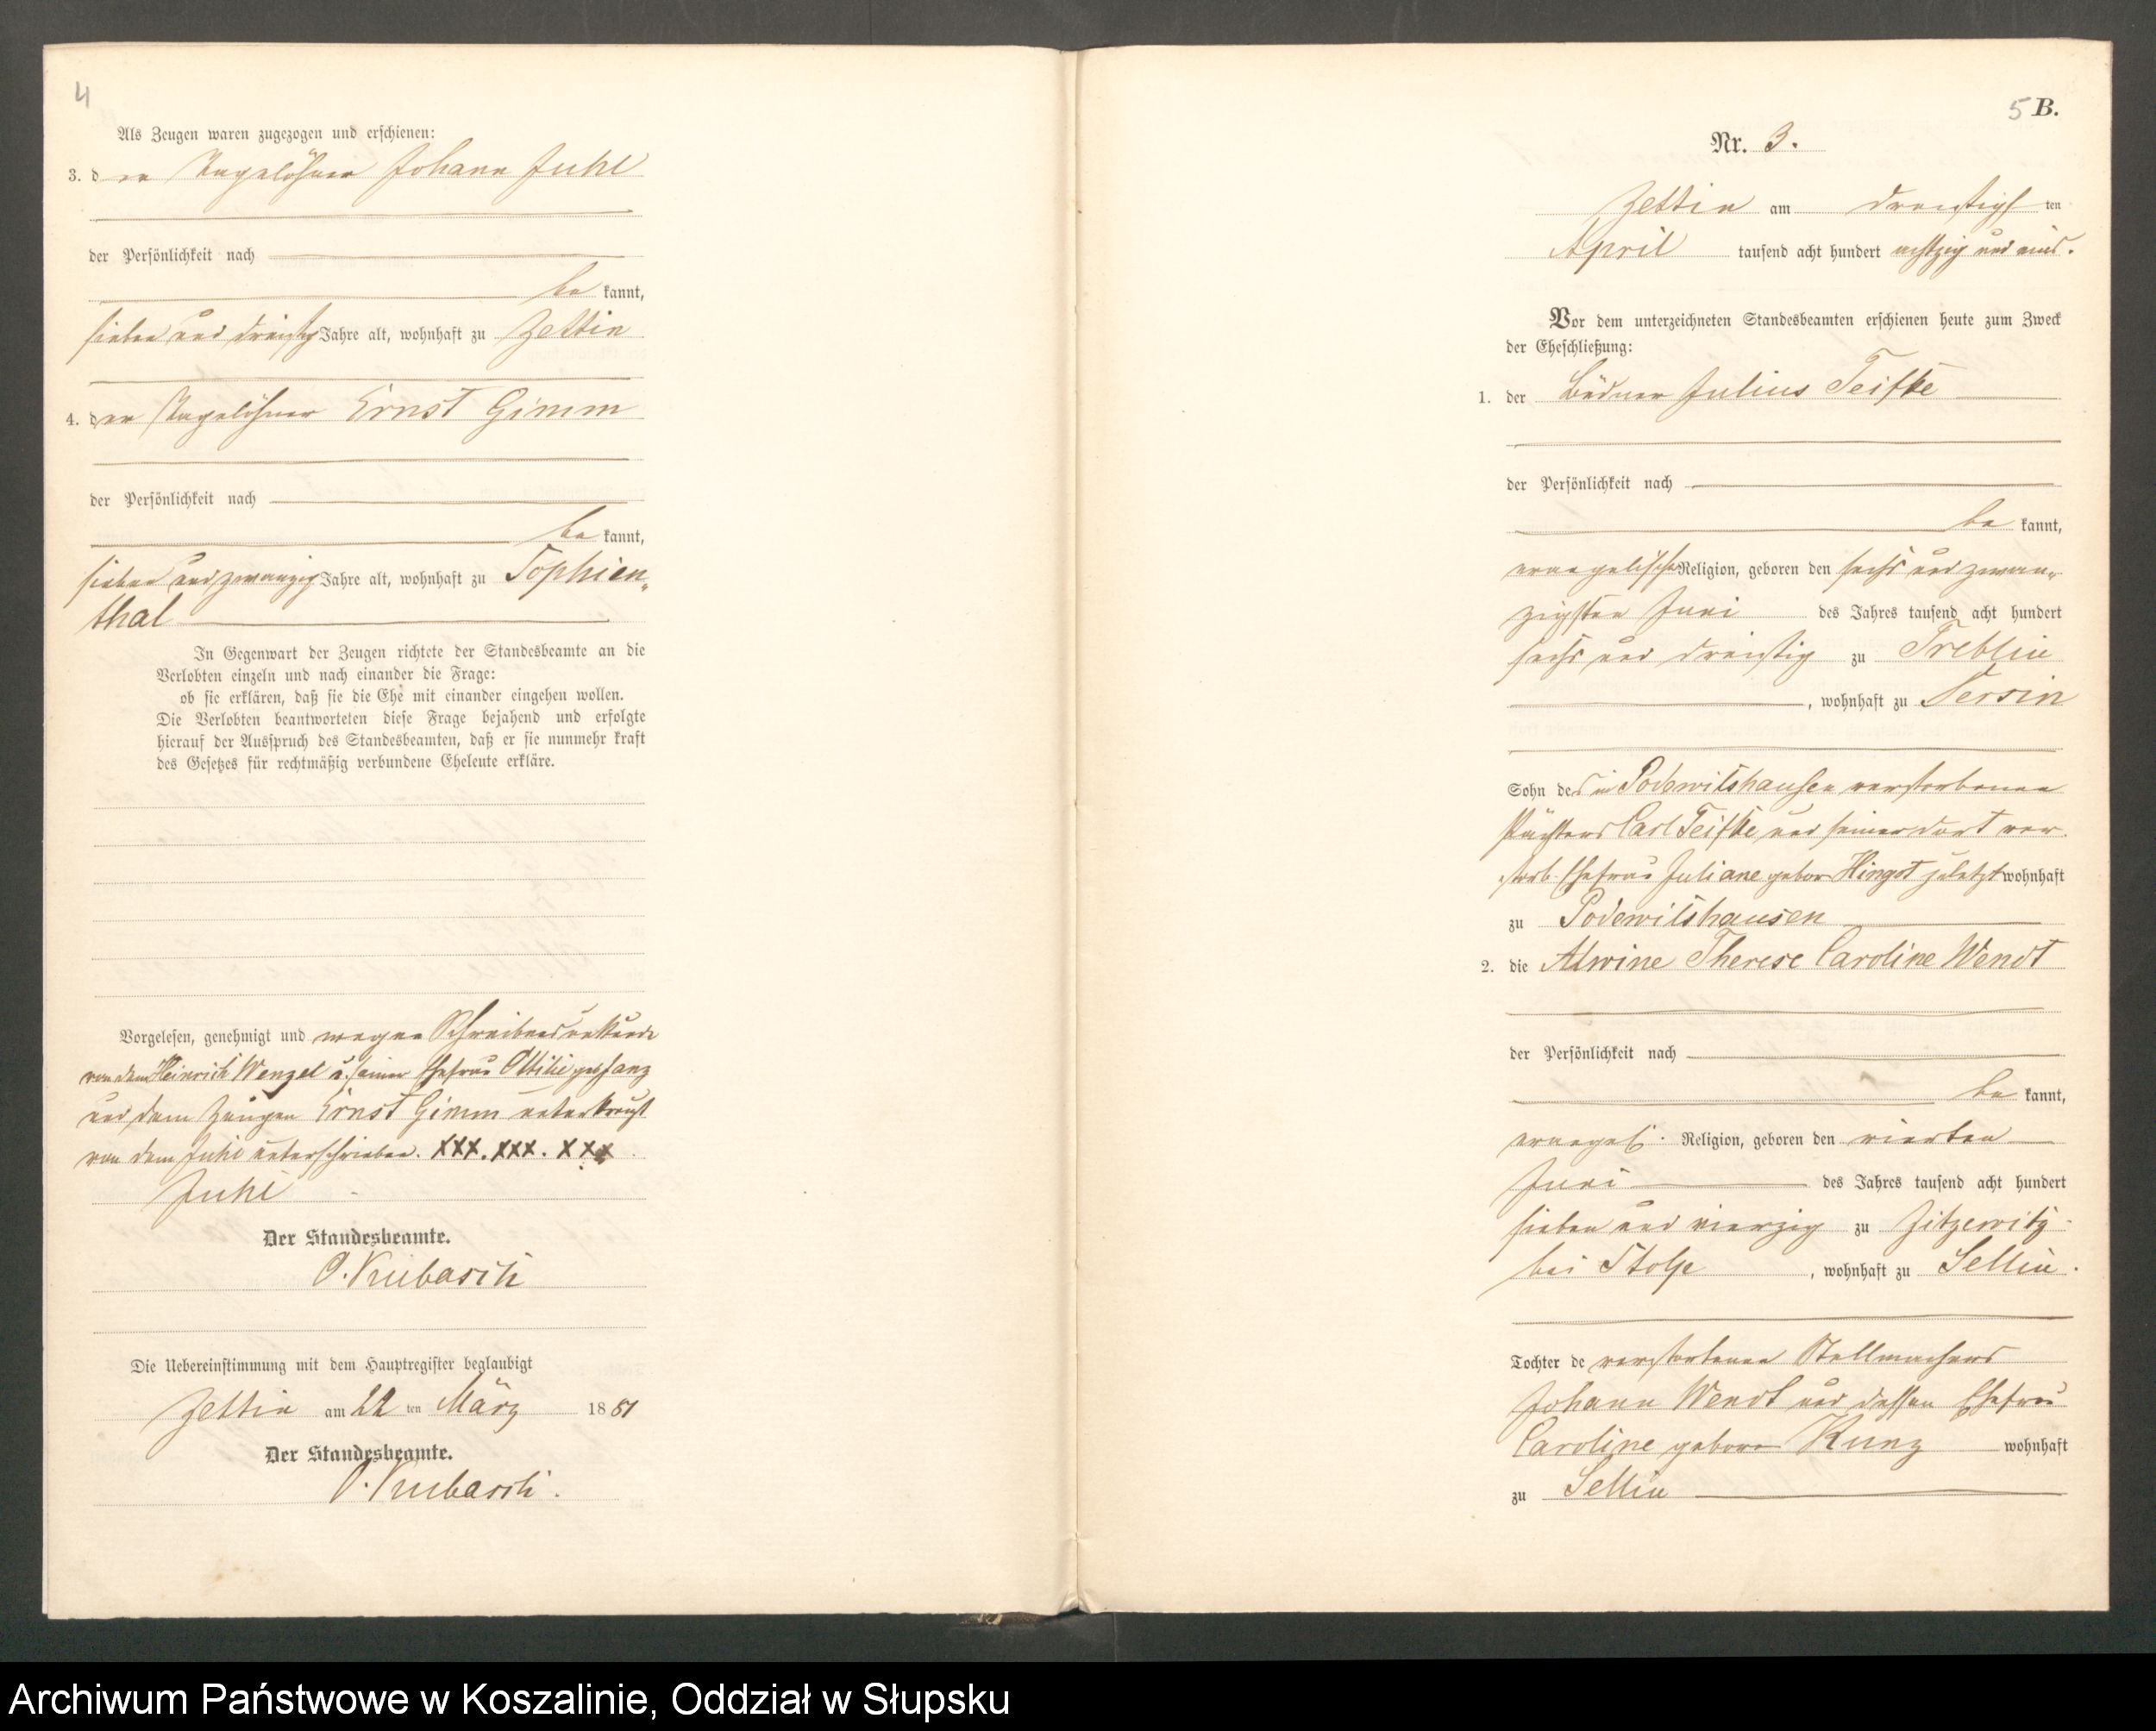 4
Als Zeugen waren zugezogen und erschienen:
3. der Tagelöhner Johann Juhl
der Persönlichkeit nach
be kannt,
sieben und dreißig Jahre alt, wohnhaft zu Zettin
4. der Tagelöhner Ernst Gimm
der Persönlichkeit nach
be kannt,
sieben und zwanzig Jahre alt, wohnhaft zu Sophien„
thal
In Gegenwart der Zeugen richtete der Standesbeamte an die
Verlobten einzeln und nach einander die Frage:
ob sie erklären, daß sie die Ehe mit einander eingehen wollen.
Die Verlobten beantworteten diese Frage bejahend und erfolgte
hierauf der Ausspruch des Standesbeamten, daß er sie nunmehr kraft
des Gesetzes für rechtmäßig verbundene Eheleute erkläre.
Vorgelesen, genehmigt und wegen Schreibensunkunde
von dem Heinrich Wenzel u. seiner Ehefrau Ottilie geb
und dem Zeugen Ernst Gimm unterkreuzt
von dem Juhl unterschrieben. XXX. XXX. XXX
Juhl
Der Standesbeamte.
O.
Die Uebereinstimmung mit dem Hauptregister beglaubigt
Zettin am 22 ten März 1881
Der Standesbeamte.
O.
5 B.
Nr. 3.
Zettin am dreißigs ten
April tausend acht hundert achtzig und eins.
Vor dem unterzeichneten Standesbeamten erschienen heute zum Zweck
der Eheschließung:
1. der Büdner Julius Teifke
der Persönlichkeit nach
be kannt,
evangelischer Religion, geboren den sechs und zwan„
zigsten Juni des Jahres tausend acht hundert
sechs und dreißig zu Treblin
, wohnhaft zu Versin
Sohn des in Podewilshausen verstorbenen
Pächters Carl Teifke und seiner dort ver
storb. Ehefrau Juliane gebor Hingst zuletzt wohnhaft
zu Podewilshausen
2. die Alwine Therese Caroline Wendt
der Persönlichkeit nach
be kannt,
evangel. Religion, geboren den vierten
Juni des Jahres tausend acht hundert
sieben und vierzig zu Zitzewitz
bei Stolp, wohnhaft zu Sellin.
Tochter de verstorbenen Stellmachers
Johann Wendt und dessen Ehefrau
Caroline geboren Kunz wohnhaft
zu Sellin
Archiwum Państwowe w Koszalinie, Oddział w Słupsku